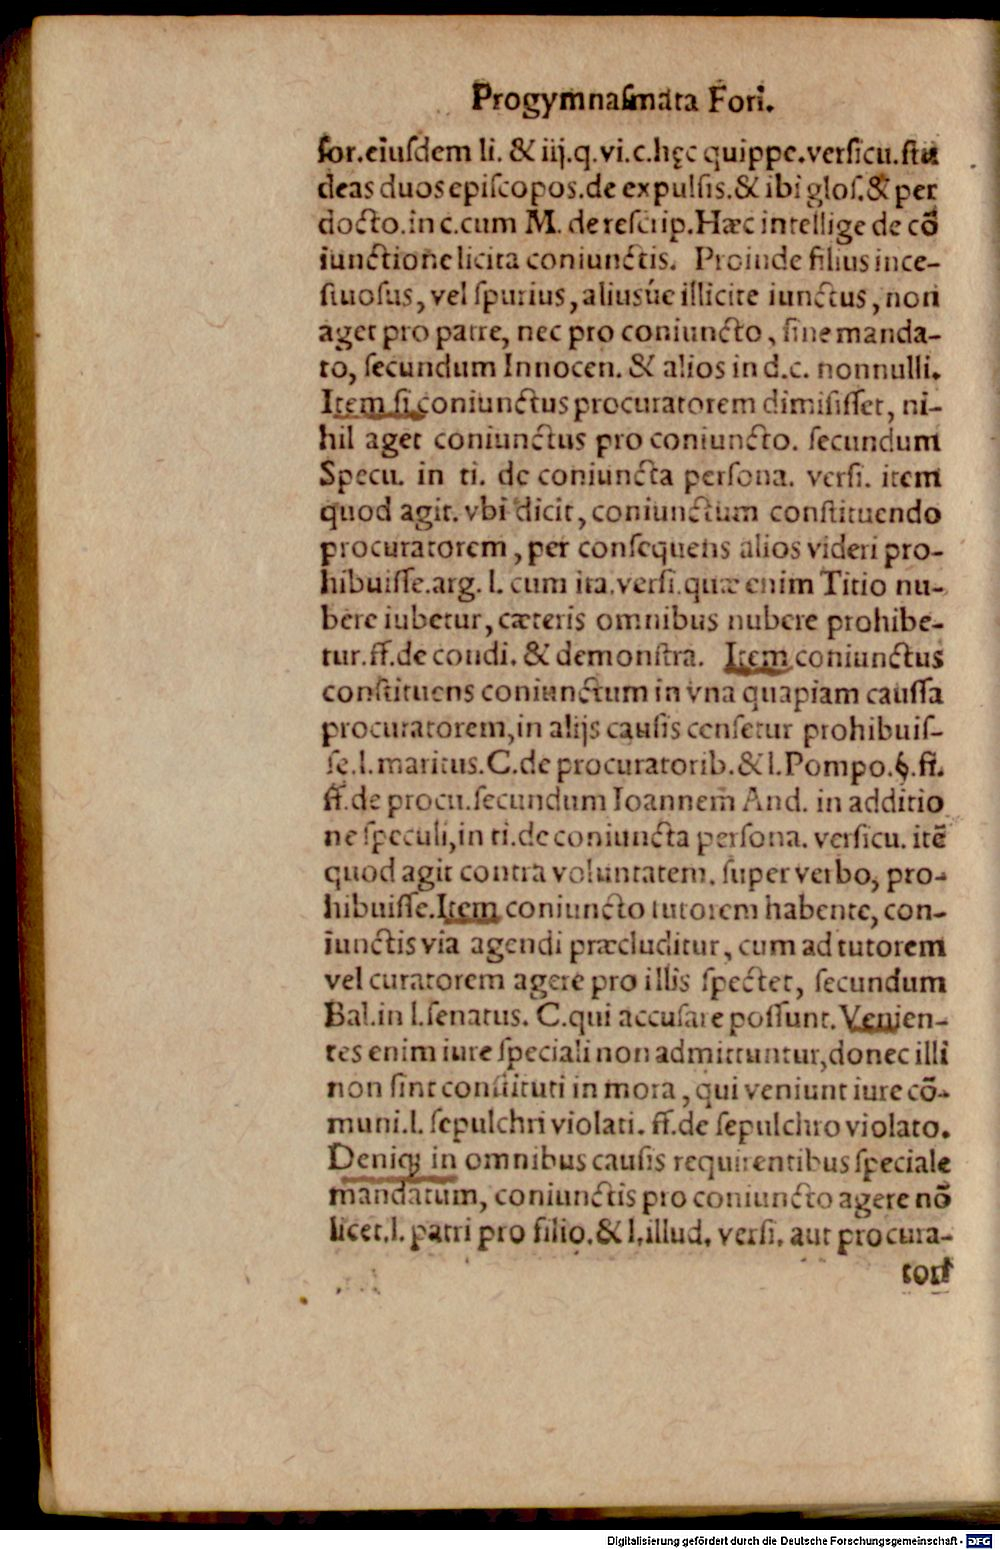 Progymnaſmata Fori.
ſor.eiuſdem li. & iij.q.vi.c.hęc quippe.verſicu.ſtu
deas duos epiſcopos.de expulſis.& ibi gloſ.& per
docto.in c.cum M. de reſcrip.Hæc intellige de cō
iunctione licita coniunctis. Proinde filius ince-
ſtuoſus, vel ſpurius, aliusúe illicite iunctus, non
aget pro patre, nec pro coniuncto, ſine manda-
to, ſecundum Innocen. & alios in d.c. nonnulli.
Item ſi coniunctus procuratorem dimiſiſſet, ni-
hil aget coniunctus pro coniuncto. ſecundum
Specu. in ti. de coniuncta perſona. verſi. item
quod agit. vbi dicit, coniunctum conſtituendo
procuratorem, per conſequens alios videri pro-
hibuiſſe.arg. l. cum ita.verſi.quæ enim Titio nu-
bere iubetur, cæteris omnibus nubere prohibe-
tur.ff.de condi. & demonſtra. Item coniunctus
conſtituens coniunctum in vna quapiam cauſſa
procuratorem,in alijs cauſis cenſetur prohibuiſ-
ſe.l.maritus.C.de procuratorib.& l.Pompo.§.fi.
ff.de procu.ſecundum Ioannem And. in additio
ne ſpeculi,in ti.de coniuncta perſona. verſicu. itē
quod agit contra voluntatem. ſuper verbo, pro-
hibuiſſe.Item coniuncto tutorem habente, con-
iunctis via agendi præcluditur, cum ad tutorem
vel curatorem agere pro illis ſpectet, ſecundum
Bal.in l.ſenatus. C.qui accuſare poſſunt. Venien-
tes enim iure ſpeciali non admittuntur,donec illi
non ſint conſtituti in mora, qui veniunt iure cō-
muni.l. ſepulchri violati. ff.de ſepulchro violato.
Deniqꝫ in omnibus cauſis requirentibus ſpeciale
mandatum, coniunctis pro coniuncto agere nō
licet.l. patri pro filio.& l.illud. verſi. aut procura-
tori
Digitalisierung gefördert durch die Deutsche Forschungsgemeinschaft - DFG